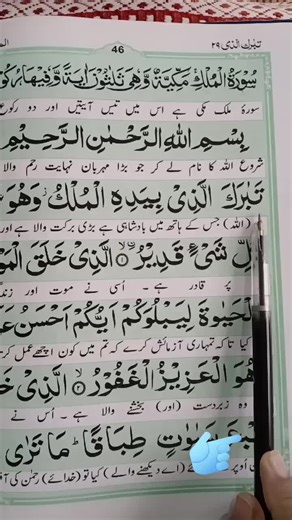 تبٰرک الذی ۲۹
46
سُوْرَةُ الْمُلْكِ مَكِّيَّةٌ وَّهِيَ ثَلٰثُوْنَ اٰيَةً وَّفِيْهَا رُكُوْ
سورۂ ملک مکی ہے اس میں تیس آیتیں اور دو رکوع
بِسْمِ اللّٰهِ الرَّحْمٰنِ الرَّحِيْمِ
شروع اللہ کا نام لے کر جو بڑا مہربان نہایت رحم والا
تَبٰرَكَ الَّذِیْ بِيَدِهِ الْمُلْكُ وَهُوَ
(اللہ) جس کے ہاتھ میں بادشاہی ہے بڑی برکت والا ہے اور
شَیْءٍ قَدِيْرُ ۙ الَّذِیْ خَلَقَ
پر قادر ہے ۔ اُسی نے موت اور
الْحَيٰوةَ لِيَبْلُوَكُمْ اَيُّكُمْ اَحْسَنُ
کیا تاکہ تمہاری آزمائش کرے کہ تم میں کون اچھے عمل
هُوَ الْعَزِيْزُ الْغَفُوْرُ ۙ الَّذِیْ
وہ زبردست (اور) بخشنے والا ہے ۔ اُس نے
طِبَاقًا ؕ مَا تَرٰی
(اے دیکھنے والے) کیا تو (خدائے) رحمٰن کی